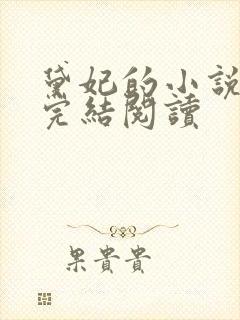 黛妃的小說
完結閱讀
果貴貴